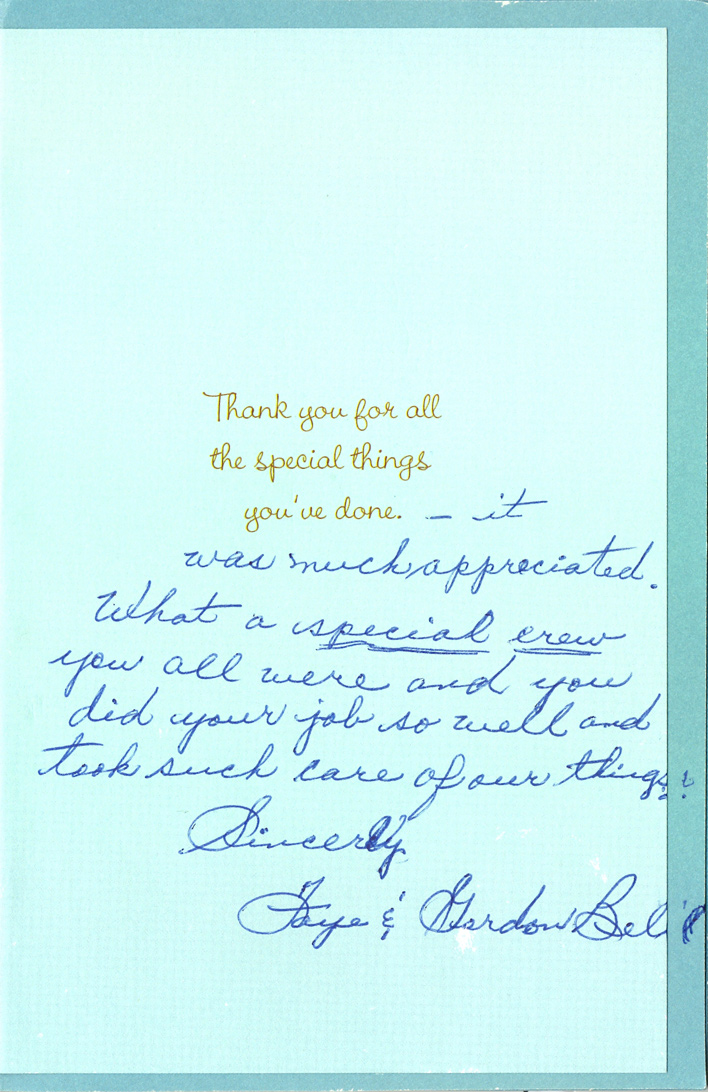 Thank you for all
the special things
you've done. – it
was much appreciated.
What a special crew
you all were and you
did your job so well and
took such care of our things!
Sincerly
Faye & Gordon Bell